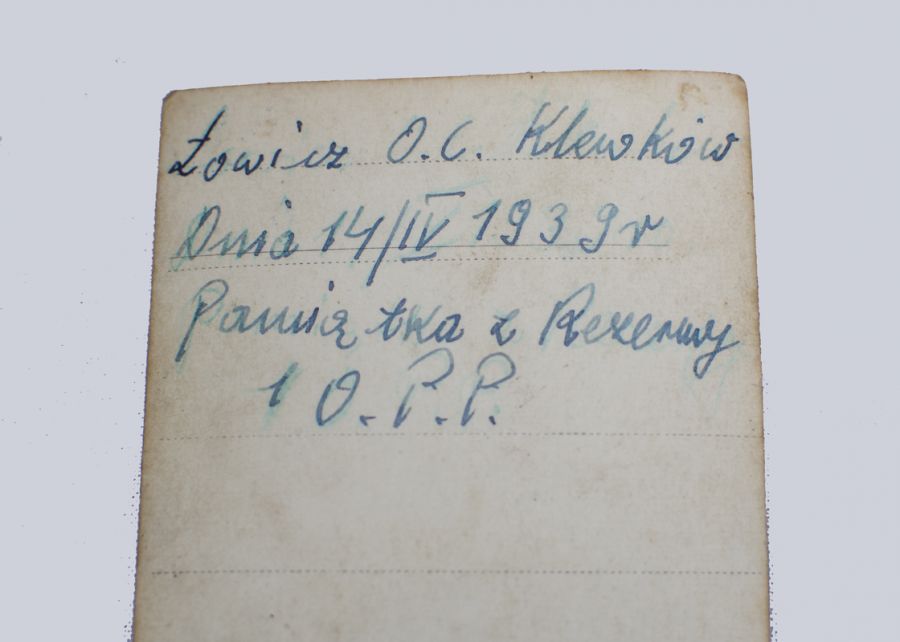 Łowicz O.C. Klewków
Dnia 14/IV 1939 r
Pamiątka z Rezerwy
1 O.P.P.